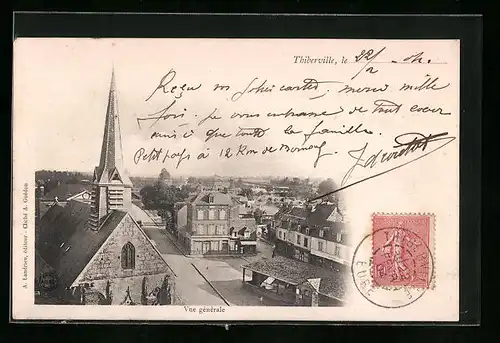 Thiberville, le 22/2 - 04.
Reçu vos jolies cartes, merci mille
fois je vous embrasse de tout cœur
ainsi que toute la famille.
Petit pays à 12 Km de Bernay.
A. Lambrieu, éditeur - Cliché A. Guédon
Vue générale
EURE